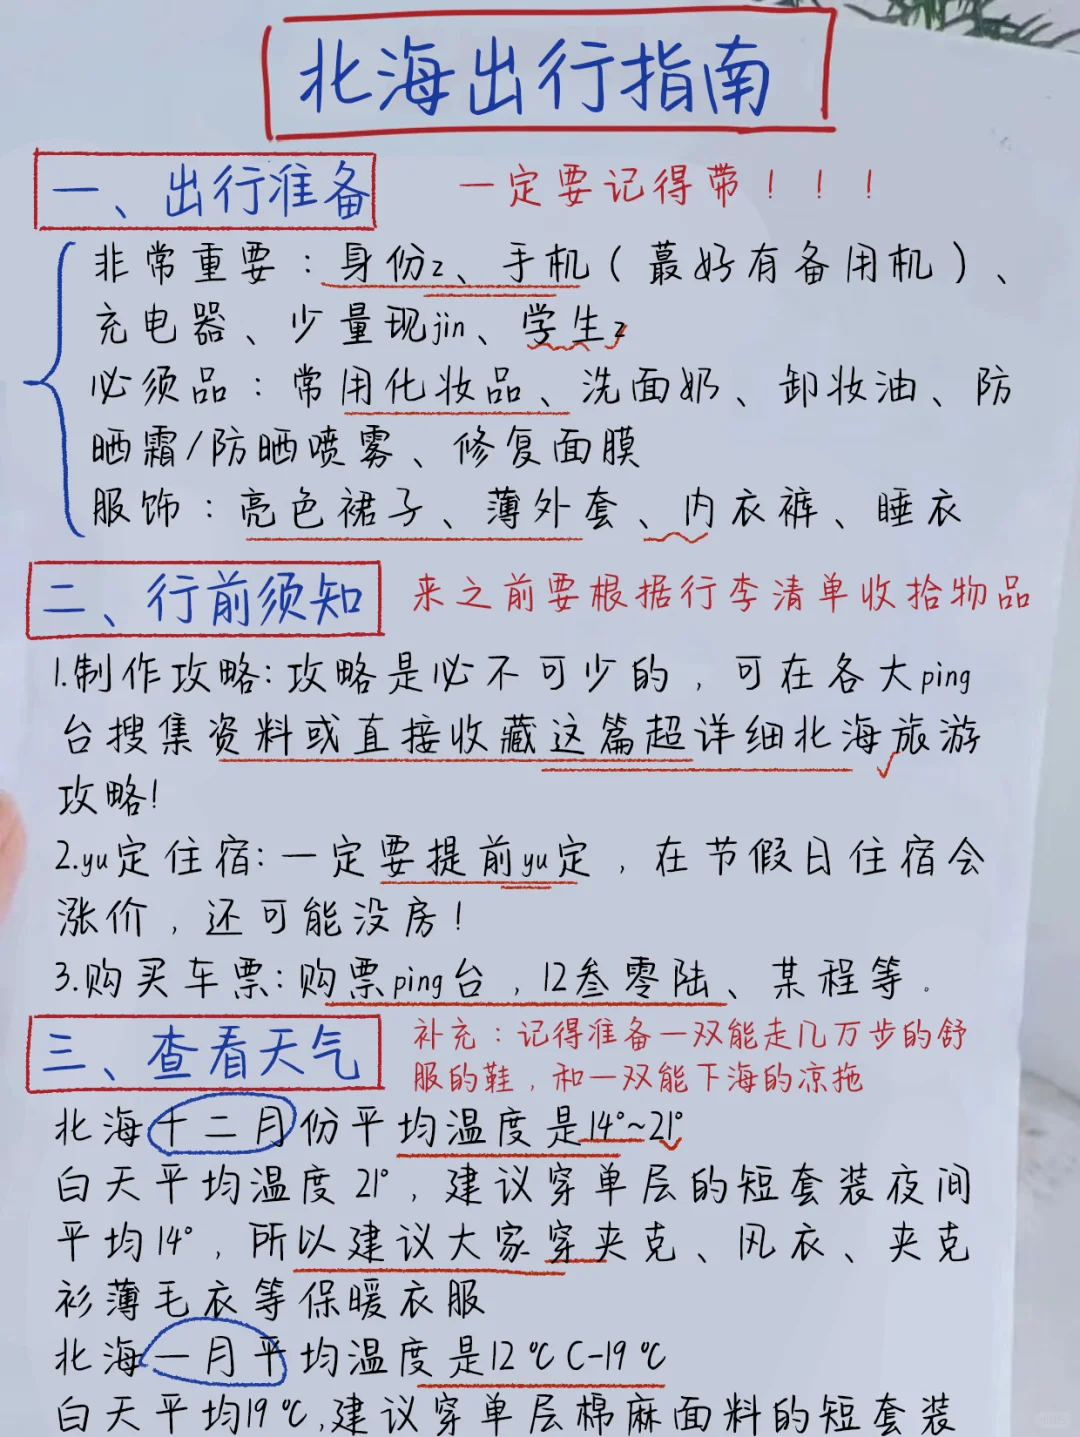 北海出行指南
一、出行准备
一定要记得带！！！
非常重要：身份z、手机（蕞好有备用机）、
充电器、少量现jin、学生z
必须品：常用化妆品、洗面奶、卸妆油、防
晒霜/防晒喷雾、修复面膜
服饰：亮色裙子、薄外套、内衣裤、睡衣
二、行前须知
来之前要根据行李清单收拾物品
1.制作攻略:攻略是必不可少的，可在各大ping
台搜集资料或直接收藏这篇超详细北海旅游
攻略!
2.yu定住宿:一定要提前yu定，在节假日住宿会
涨价，还可能没房!
3.购买车票:购票ping台，12叁零陆、某程等.
三、查看天气
补充：记得准备一双能走几万步的舒
服的鞋，和一双能下海的凉拖
北海十二月份平均温度是14°~21°
白天平均温度21°，建议穿单层的短套装夜间
平均14°，所以建议大家穿夹克、风衣、夹克
衫薄毛衣等保暖衣服
北海一月平均温度是12℃C-19℃
白天平均19℃,建议穿单层棉麻面料的短套装